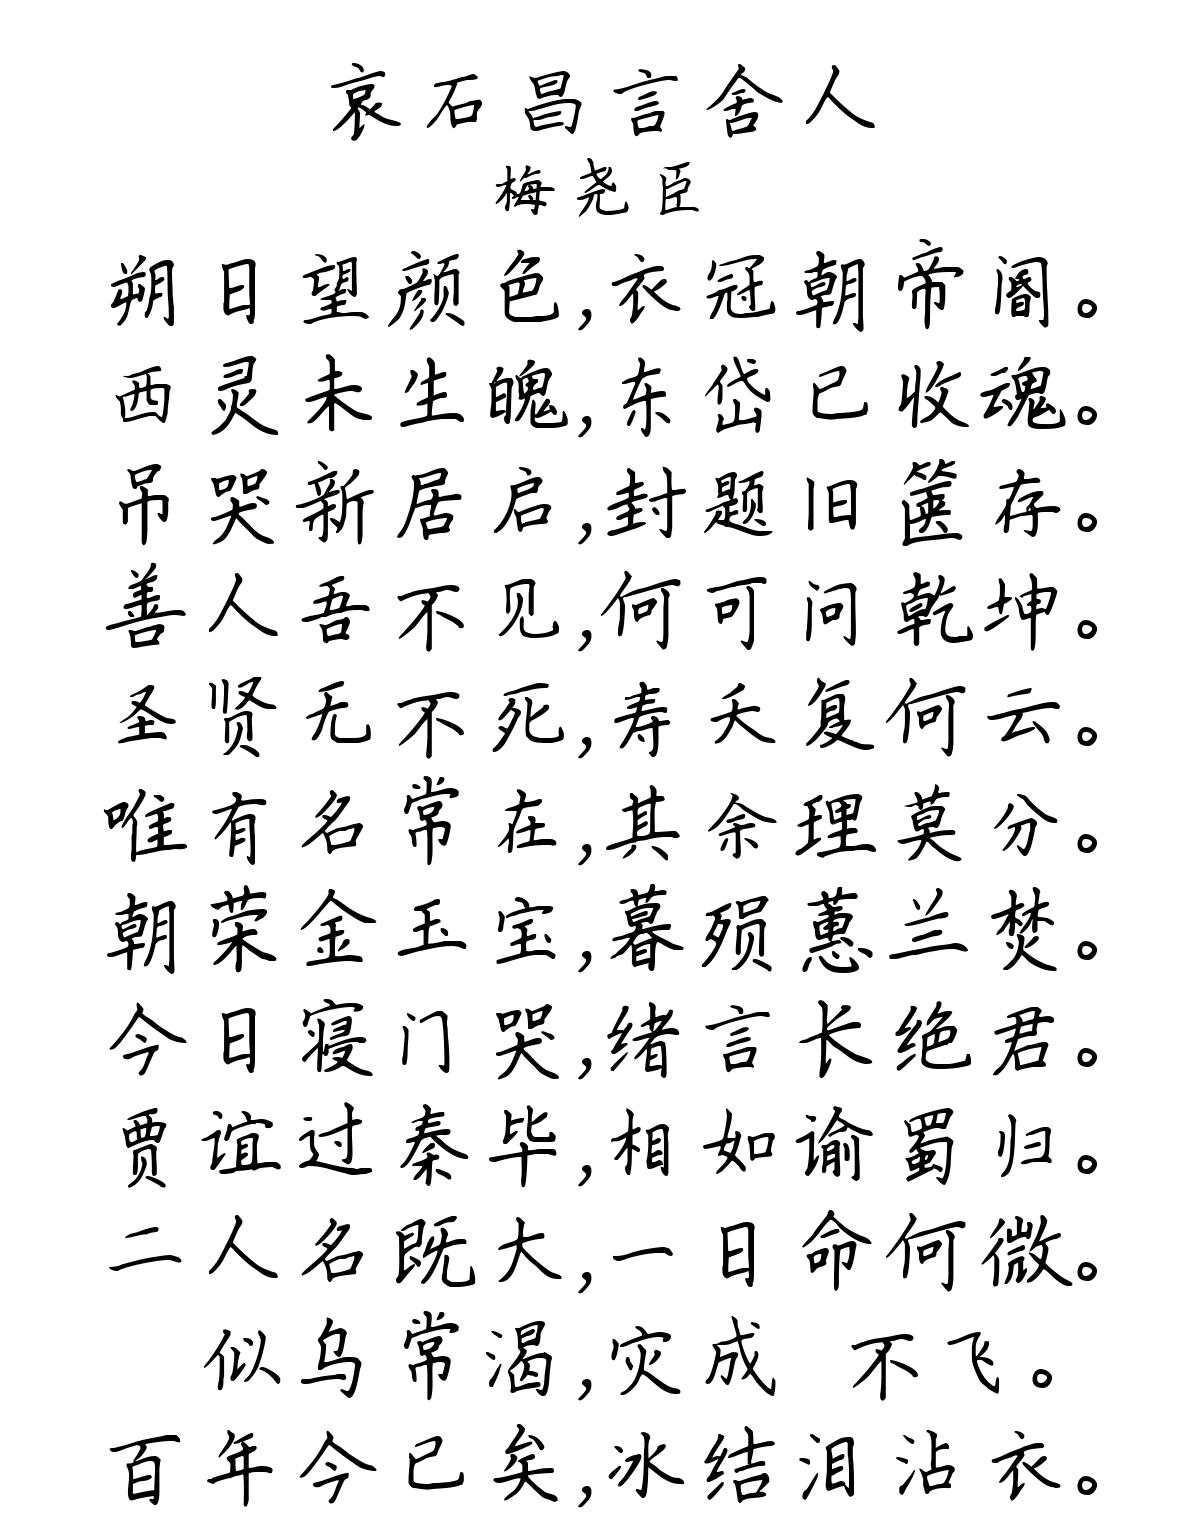 哀石昌言舍人
梅尧臣
朔日望颜色,衣冠朝帝阍。
西灵未生魄,东岱已收魂。
吊哭新居启,封题旧箧存。
善人吾不见,何可问乾坤。
圣贤无不死,寿夭复何云。
唯有名常在,其余理莫分。
朝荣金玉宝,暮殒蕙兰焚。
今日寝门哭,绪言长绝君。
贾谊过秦毕,相如谕蜀归。
二人名既大,一日命何微。
似乌常渴,灾成 不飞。
百年今已矣,冰结泪沾衣。